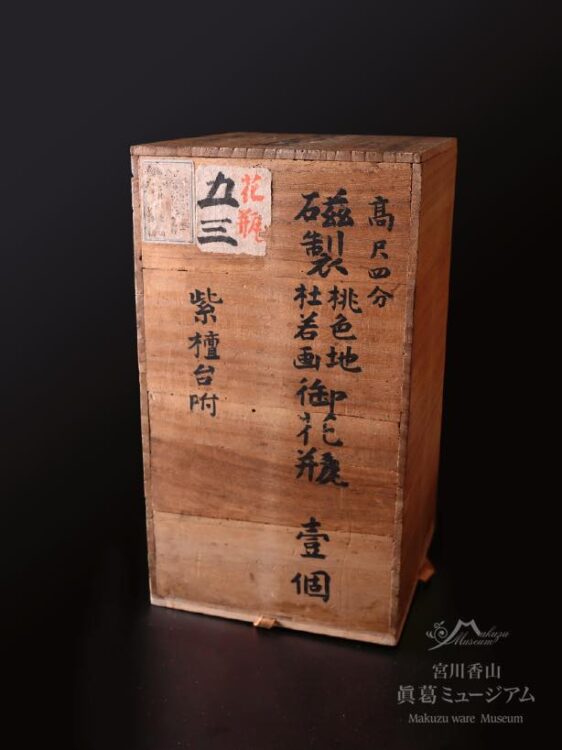 高尺四分
磁製桃色地杜若画御花瓶 壹個
紫檀台附
花瓶
五三
Makuzu
Museum
宮川香山
眞葛ミュージアム
Makuzu ware Museum